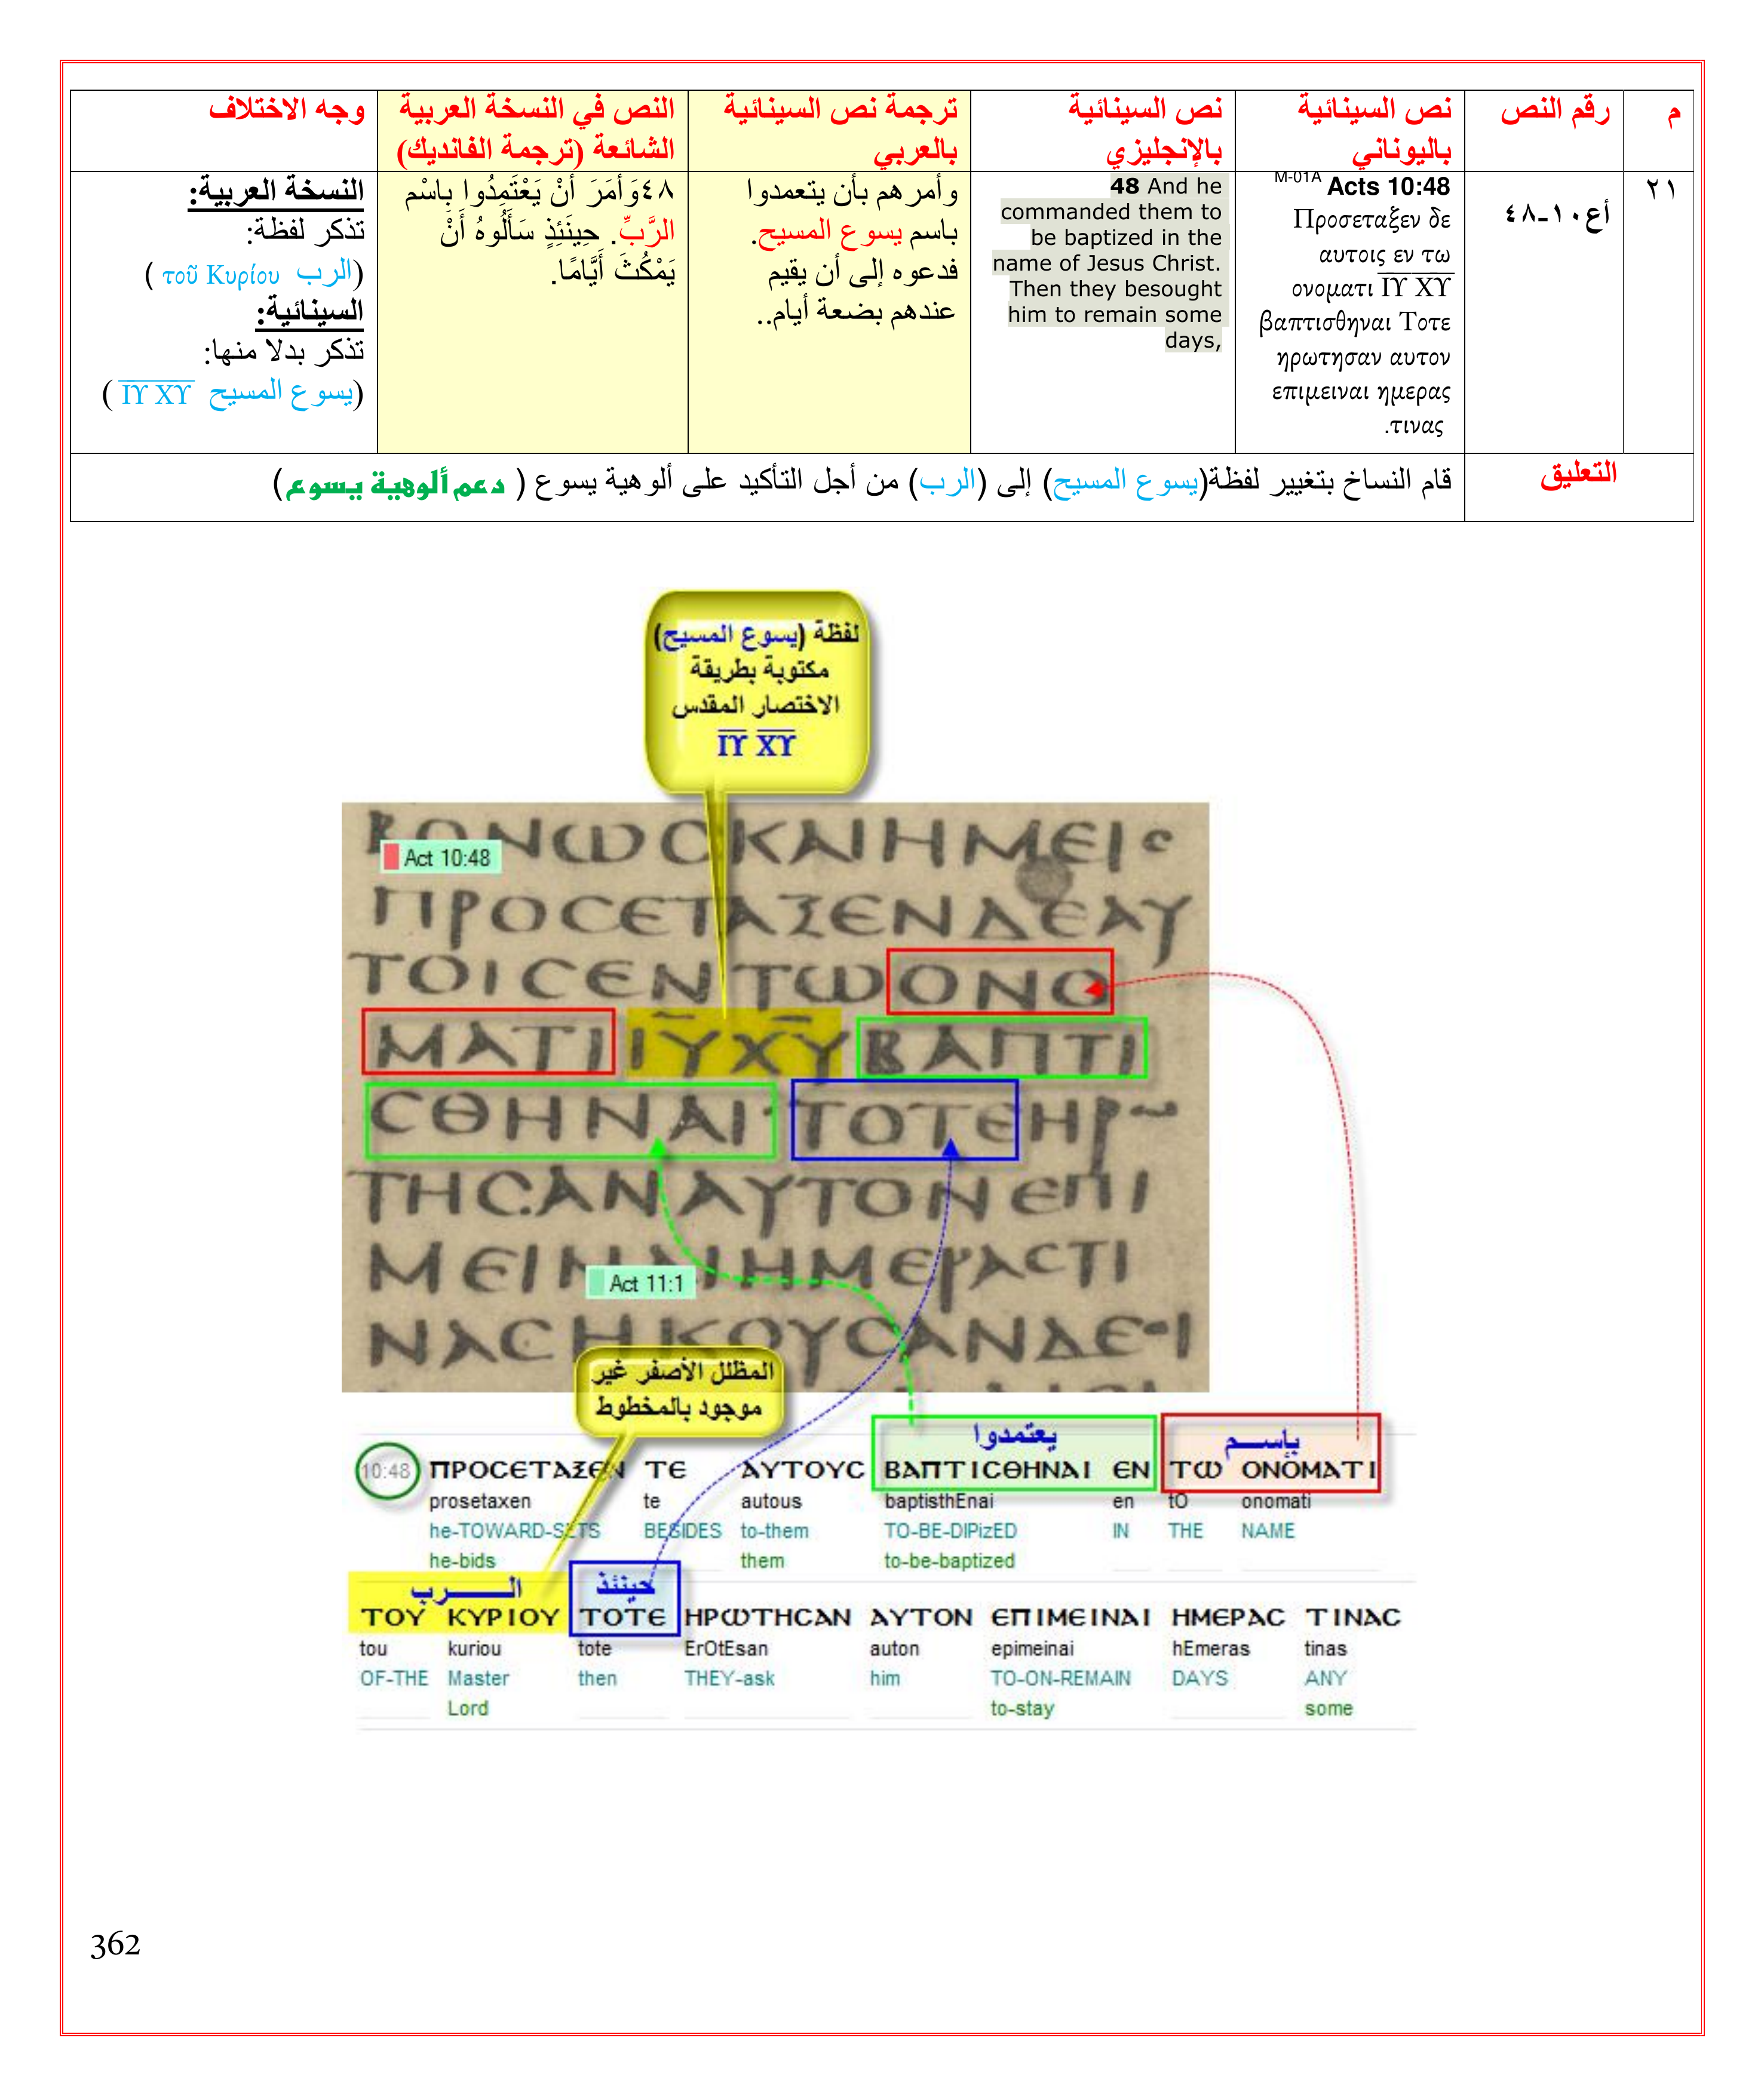 م
رقم النص
نص السينائية
باليوناني
نص السينائية
بالإنجليزي
ترجمة نص السينائية
بالعربي
النص في النسخة العربية
الشائعة (ترجمة الفانديك)
وجه الاختلاف
٢١
أع١٠-٤٨
M-01A Acts 10:48
Προσεταξεν δε
αυτοις εν τω
ονοματι ΙΥ ΧΥ
βαπτισθηναι Τοτε
ηρωτησαν αυτον
επιμειναι ημερας
τινας.
48 And he
commanded them to
be baptized in the
name of Jesus Christ.
Then they besought
him to remain some
days,
وأمرهم بأن يتعمدوا
باسم يسوع المسيح.
فدعوه إلى أن يقيم
عندهم بضعة أيام..
٤٨وَأَمَرَ أَنْ يَعْتَمِدُوا بِاسْمِ
الرَّبِّ. حِينَئِذٍ سَأَلُوهُ أَنْ
يَمْكُثَ أَيَّامًا.
النسخة العربية:
تذكر لفظة:
(الرب τοῦ Κυρίου )
السينائية:
تذكر بدلا منها:
(يسوع المسيح ΙΥ ΧΥ )
التعليق
قام النساخ بتغيير لفظة(يسوع المسيح) إلى (الرب) من أجل التأكيد على ألوهية يسوع ( دعم ألوهية يسوع)
لفظة (يسوع المسيح)
مكتوبة بطريقة
الاختصار المقدس
ΙΥ ΧΥ
Act 10:48
ΝΩϹΚΑΙΗΜΕΙϹ
ΠΡΟϹΕΤΑΞΕΝΔΕΑΥ
ΤΟΙϹΕΝΤΩΟΝΟ
ΜΑΤΙΙΥΧΥΒΑΠΤΙ
ϹΘΗΝΑΙ·ΤΟΤΕΗΡΩ
ΤΗϹΑΝΑΥΤΟΝΕΠΙ
ΜΕΙΝΑΙΗΜΕΡΑϹΤΙ
Act 11:1
ΝΑϹΗΚΟΥϹΑΝΔΕ
المظلل الأصفر غير
موجود بالمخطوط
يعتمدوا
بإسم
10:48 ΠΡΟϹΕΤΑΞΕΝ ΤΕ ΑΥΤΟΥϹ ΒΑΠΤΙϹΘΗΝΑΙ ΕΝ ΤΩ ΟΝΟΜΑΤΙ
prosetaxen te autous baptisthEnai en tO onomati
he-TOWARD-SETS BESIDES to-them TO-BE-DIPizED IN THE NAME
he-bids them to-be-baptized
الرب
حينئذ
ΤΟΥ ΚΥΡΙΟΥ ΤΟΤΕ ΗΡΩΤΗϹΑΝ ΑΥΤΟΝ ΕΠΙΜΕΙΝΑΙ ΗΜΕΡΑϹ ΤΙΝΑϹ
tou kuriou tote ErOtEsan auton epimeinai hEmeras tinas
OF-THE Master then THEY-ask him TO-ON-REMAIN DAYS ANY
Lord to-stay some
362